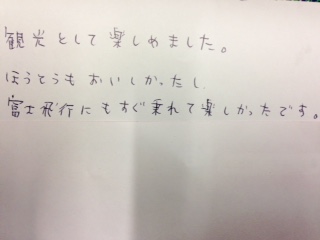 観光として楽しめました。
ほうとうもおいしかったし
富士飛行にもすぐ乗れて楽しかったです。